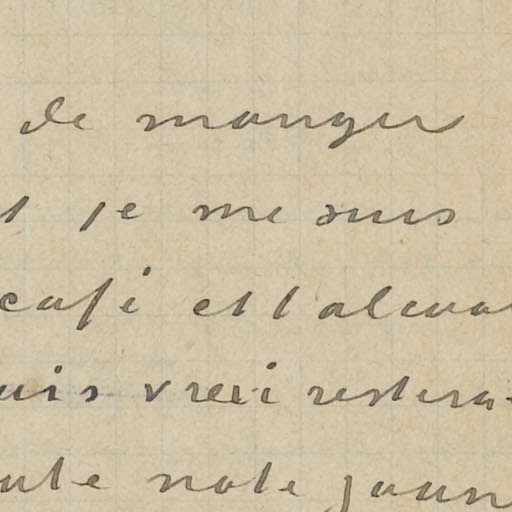 de manger
t je me suis
café et l alcool
uis vrai restera
aute note jaun